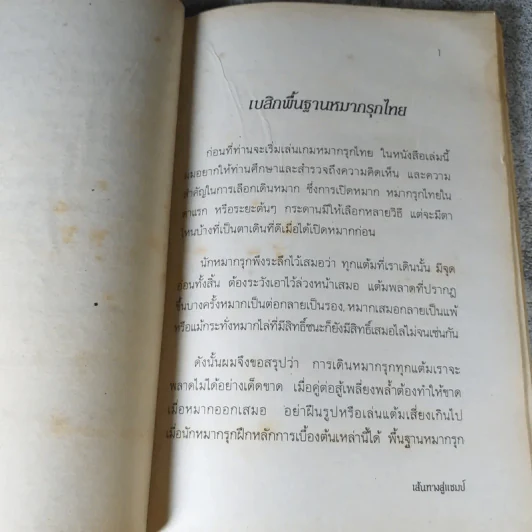 1
เบสิกพื้นฐานหมากรุกไทย
ก่อนที่ท่านจะเริ่มเล่นเกมหมากรุกไทย ในหนังสือเล่มนี้
ผมอยากให้ท่านศึกษาและสำรวจถึงความคิดเห็น และความ
สำคัญในการเลือกเดินหมาก ซึ่งการเปิดหมาก หมากรุกไทยใน
ตาแรก หรือระยะต้นๆ กระดานมีให้เลือกหลายวิธี แต่จะมีตา
ไหนบ้างที่เป็นตาเดินที่ดีเมื่อได้เปิดหมากก่อน
นักหมากรุกพึงระลึกไว้เสมอว่า ทุกแต้มที่เราเดินนั้น มีจุด
อ่อนทั้งสิ้น ต้องระวังเอาไว้ล่วงหน้าเสมอ แต้มพลาดที่ปรากฏ
ขึ้นบางครั้งหมากเป็นต่อกลายเป็นรอง, หมากเสมอกลายเป็นแพ้
หรือแม้กระทั่งหมากไล่ที่มีสิทธิ์ชนะก็ยังมีสิทธิ์เสมอไล่ไม่จนเช่นกัน
ดังนั้นผมจึงขอสรุปว่า การเดินหมากรุกทุกแต้มเราจะ
พลาดไม่ได้อย่างเด็ดขาด เมื่อคู่ต่อสู้เพลี่ยงพล้ำต้องทำให้ขาด
เมื่อหมากออกเสมอ อย่าฝืนรูปหรือเล่นแต้มเสี่ยงเกินไป
เมื่อนักหมากรุกฝึกหลักการเบื้องต้นเหล่านี้ได้ พื้นฐานหมากรุก
เส้นทางสู่แชมป์